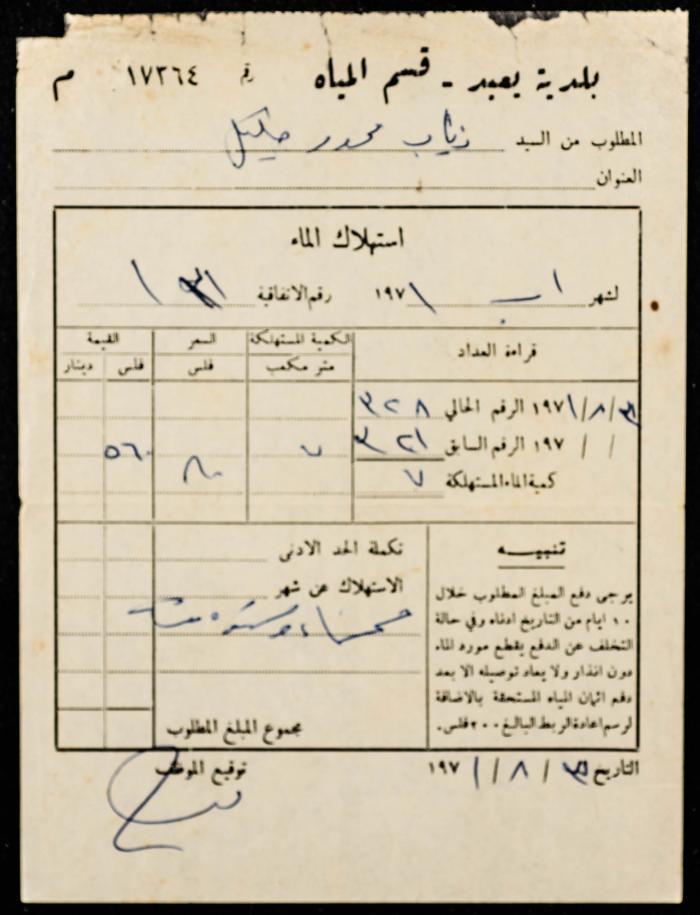 بلدية يعبد - قسم المياه رقم ١٧٣٦٤ م
المطلوب من السيد ذياب محمود
العنوان
استهلاك الماء
لشهر اب ١٩٧١ رقم الاتفاقية
قراءة العداد الكمية المستهلكة السعر القيمة
متر مكعب فلس فلس دينار
٣١/٨/١٩٧١ الرقم الحالي ٣٢٨
/ / ١٩٧ الرقم السابق ٣٢١ ٧ ٨٠ ٥٦٠
كمية الماء المستهلكة ٧
تنبيه
يرجى دفع المبلغ المطلوب خلال
١٠ ايام من التاريخ ادناه وفي حالة
التخلف عن الدفع يقطع مورد الماء
دون انذار ولا يعاد توصيله الا بعد
دفع اثمان المياه المستحقة بالاضافة
لرسم اعادة الربط البالغ ٢٠٠ فلس.
تكملة الحد الادنى
الاستهلاك عن شهر
خمسماية وستون فلس
مجموع المبلغ المطلوب
التاريخ ٣١/٨/١٩٧١ توقيع الموظف